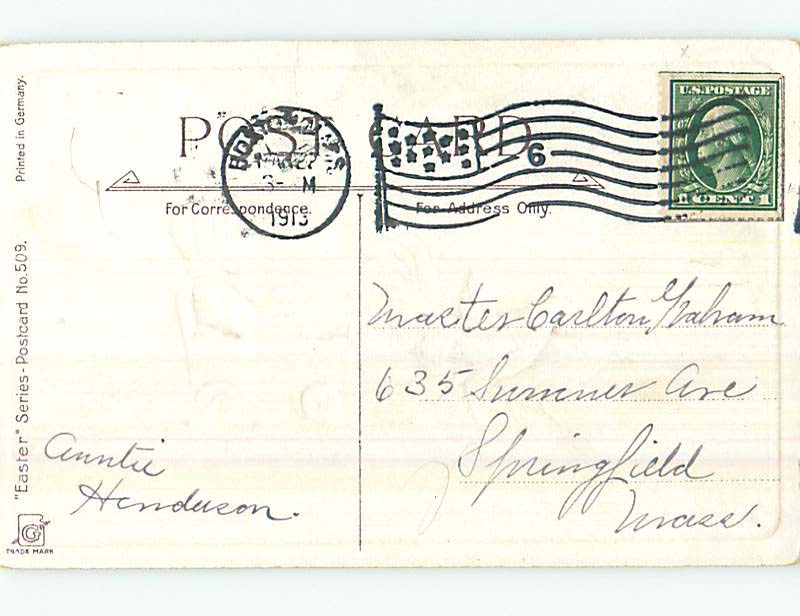 Printed in Germany.
"Easter" Series - Postcard No. 509.
TRADE MARK
G
POST CARD
For Correspondence.
For Address Only.
BOSTON, MASS
MAR 22
3- M
1913
6
U.S. POSTAGE
1 CENT 1
Master Carlton Graham
635 Sumner Ave
Springfield
Mass.
Auntie
Henderson.